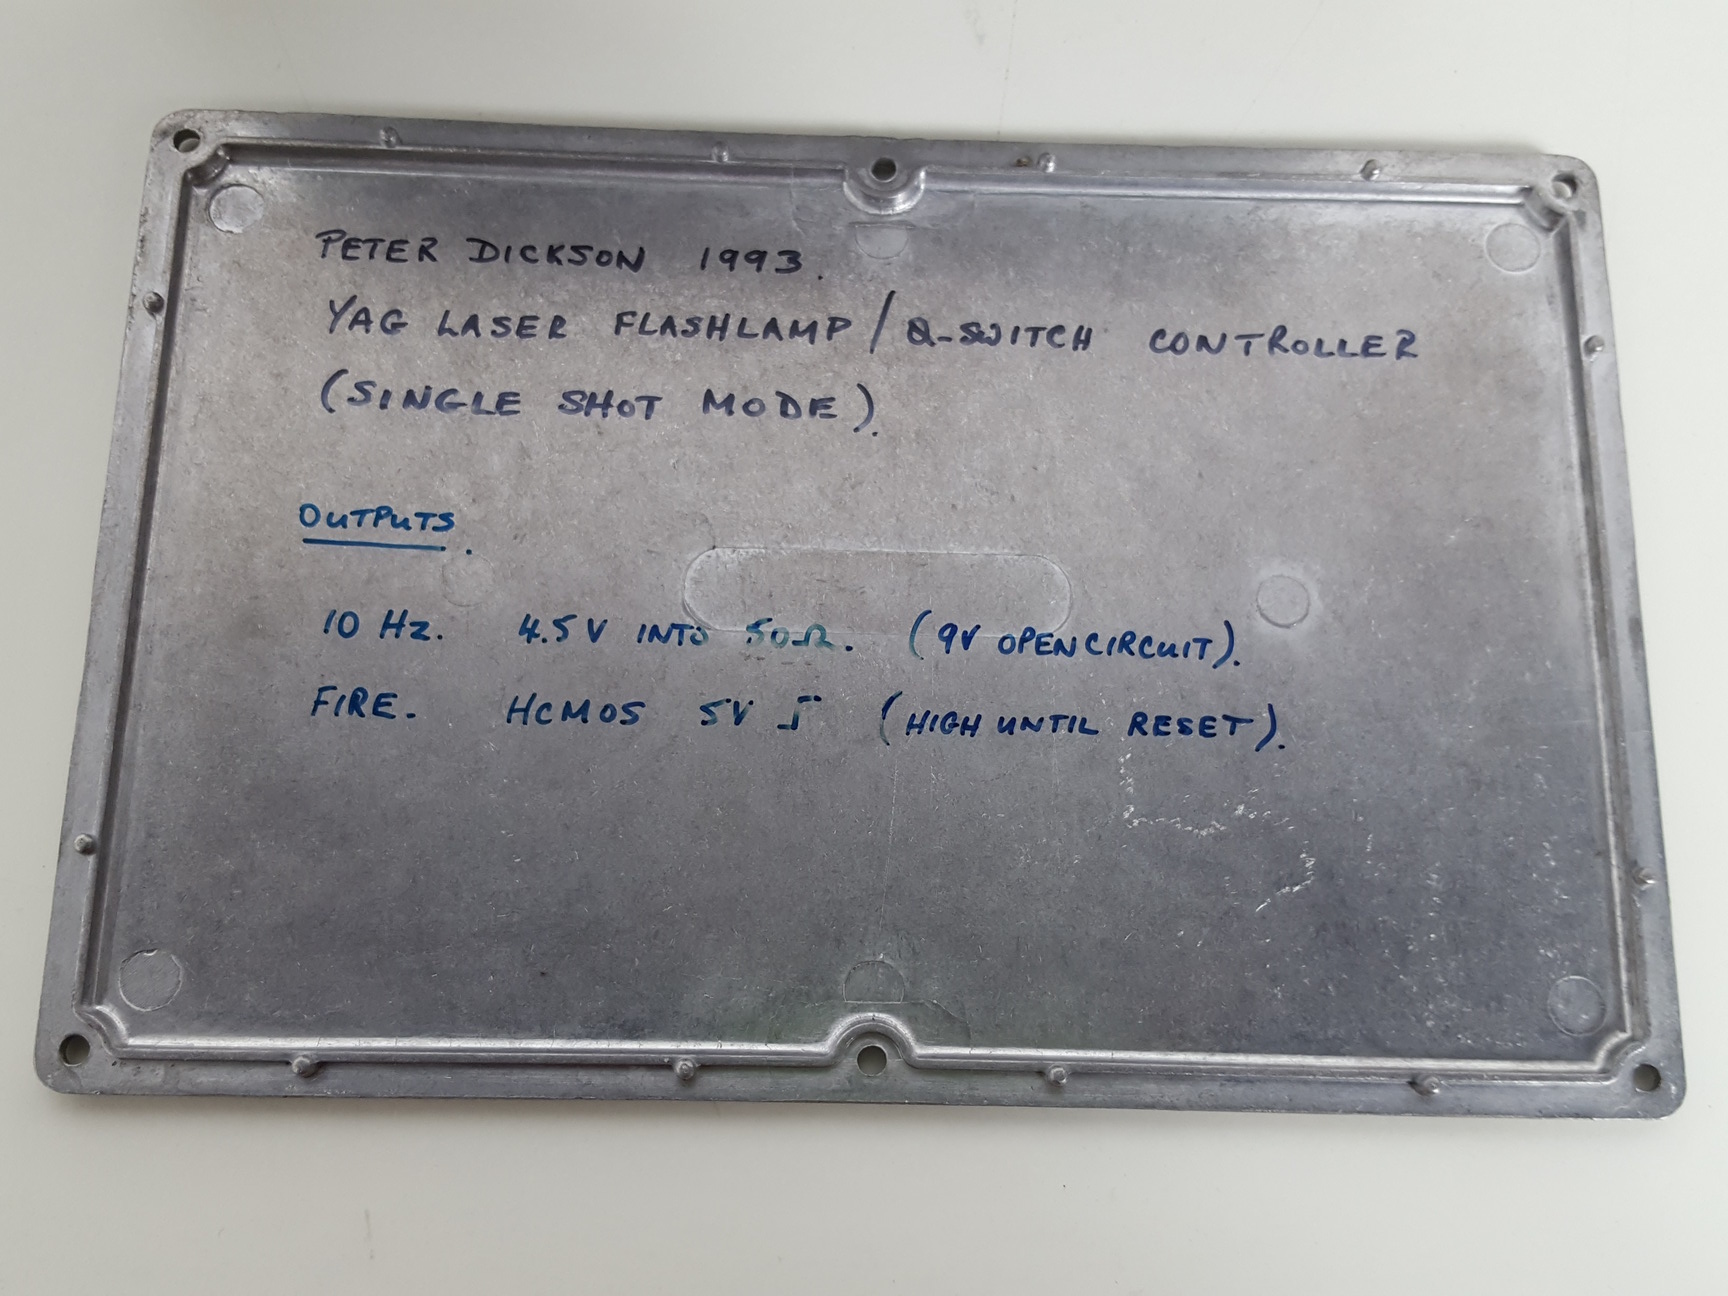 PETER DICKSON 1993.
YAG LASER FLASHLAMP / Q-SWITCH CONTROLLER
(SINGLE SHOT MODE).
OUTPUTS.
10 Hz. 4.5V INTO 50Ω. (9V OPEN CIRCUIT).
FIRE. HCMOS 5V ⎍ (HIGH UNTIL RESET).